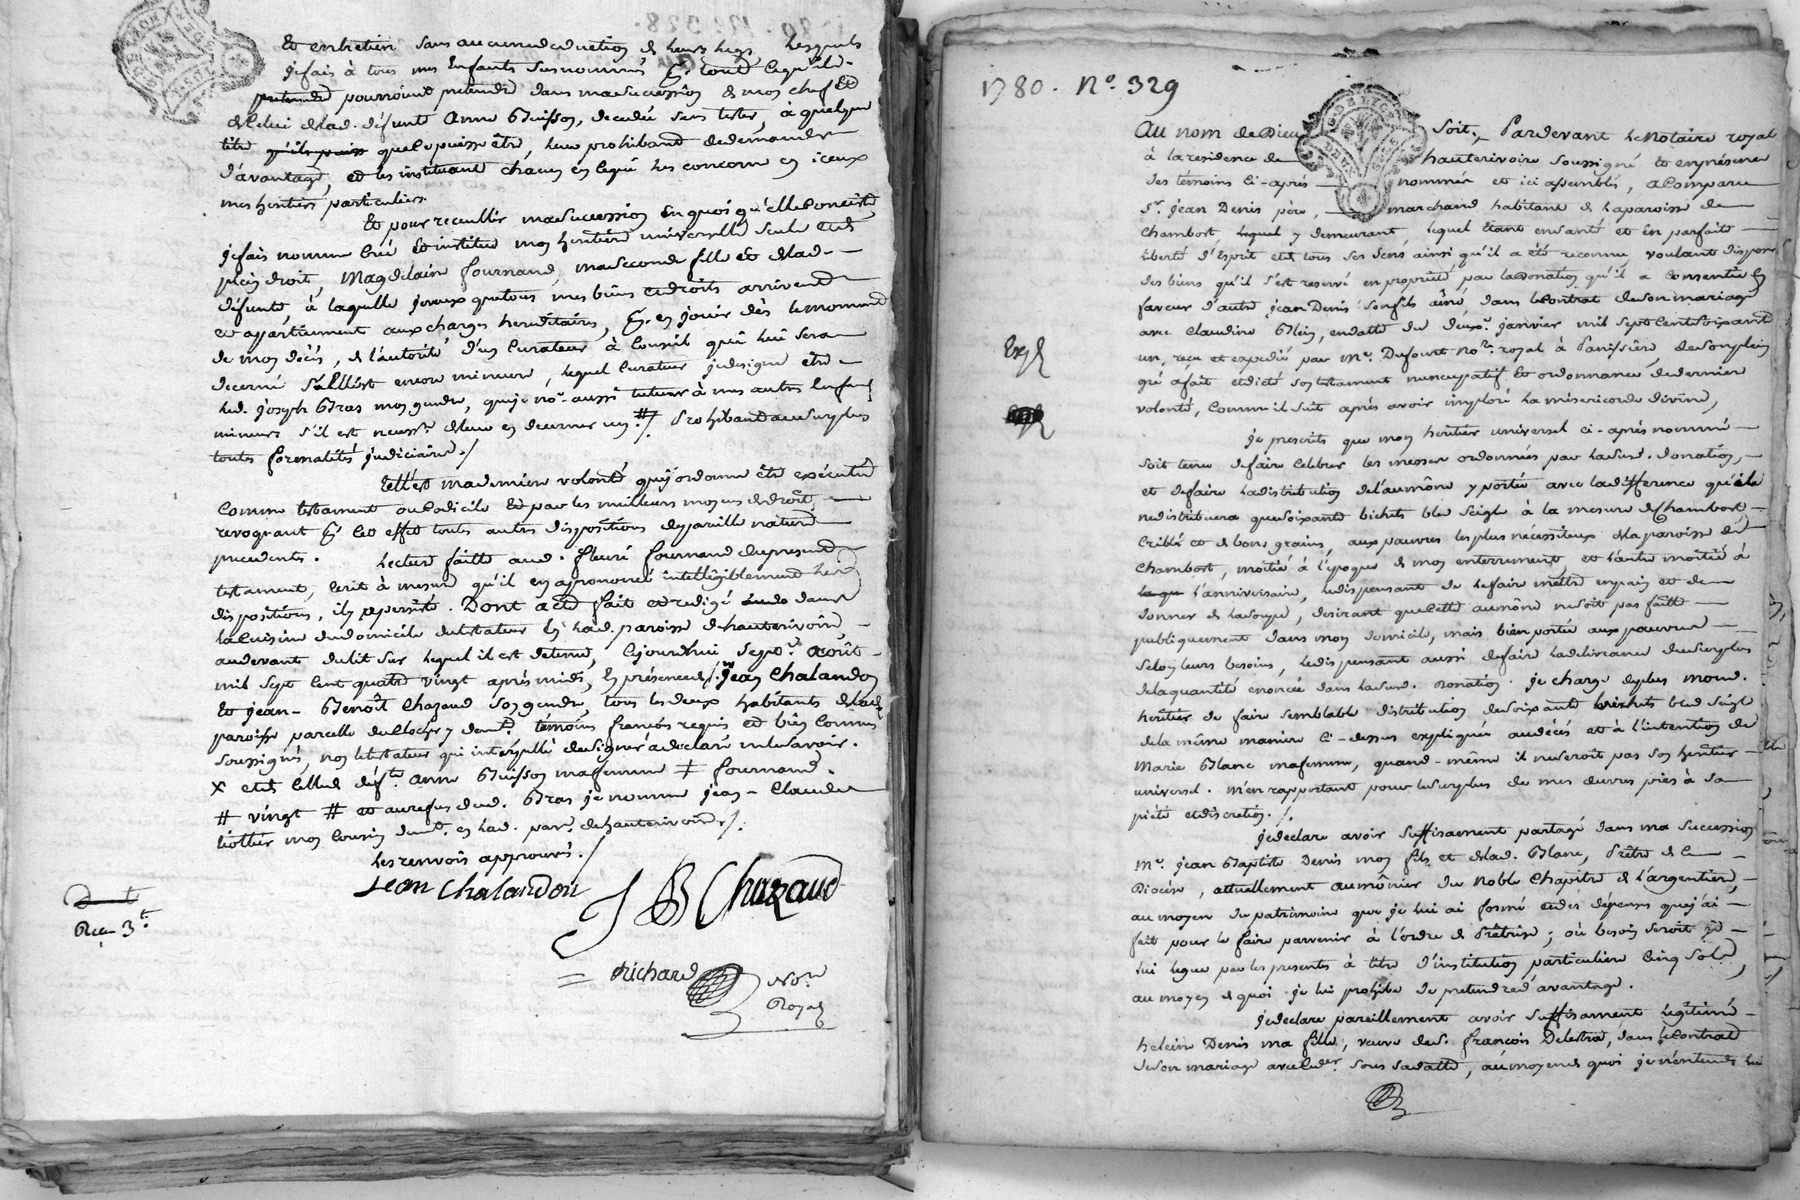 et entretien sans aucune deduction de leurs legs, lesquels
je fais à tous mes enfants susnommés pr. tout ce qu'ils
pretendre pourroient pretendre dans ma succession de mon chef et
de celui de lad. défunte anne Buisson, decedée sans tester, à quelque
titre qu'ils puiss que ce puisse être, leur prohibant de demander
d'avantage, et les instituant chacun en ce qui les concerne en iceux
mes héritiers particuliers.
Et pour recueillir ma succession en quoi qu'elle consiste
je fais nomme créé et institue mon héritière universelle seule et de
plein droit, Magdelaine fournand, ma seconde fille et de lad.
défunte, à laquelle je veux que tous mes biens et droits arrivent
et appartiennent aux charges hereditaires, pr. en jouir dès le moment
de mon décès, de l'autorité d'un curateur à conseil qui lui sera
decerné si elle est encore mineure, lequel curateur je designe être
led. joseph Bras mon gendre, que je no.e aussi tuteur à mes autres enfans
mineurs s'il est necess.e de leur en decerner un # /. Prohibant au surplus
toutes formalités judiciaires ./
Telle est ma derniere volonté que j'ordonne être exécutée
comme testament ou codicile et par les meilleurs moyens de droit,
revoquant pr. cet effet toutes autres dispositions de pareille nature
precedents. Lecture faitte aud. fleuri fournand du present
testament, écrit à mesure qu'il en a prononcé intelligiblement les
dispositions, il y a persisté. Dont acte fait et redigé dans
la cuisine du domicile du testateur en lad. paroisse d'hauterivoire,
au devant du lit sur lequel il est detenu, cejourdhui sept.e août
mil sept cent quatre vingt après midi, en présence de s.r jean Chalandon
et jean-Benoît Chazaud son gendre, tous les deux habitants de lad.
paroisse parcelle du clocher y dem.t témoins françois requis et bien connus
soussignés, non le testateur qui interpellé de signer a declaré ne le savoir.
x et de celle de déf.te anne Buisson ma femme ≠ fournand.
# vingt # et au refus dud. Bras je nomme jean-Claude
tiollier mon cousin dem.t en lad. par.e de hauterivoire /.
Les renvois approuvés. /
Jean Chalandon
J B Chazaud
Richard No.re
Royal
Reçu 3 tt
1780. N.o 329
Au nom de Dieu soit; Pardevant le Notaire royal
à la residence de hauterivoire soussigné et en présence
des temoins ci-après nommés et ici assemblés, a comparu
S.r jean Denis père, marchand habitant de la paroisse de
Chambost lequel y demeurant, lequel étant en santé et en parfaite
liberté d'esprit et de tous ses sens ainsi qu'il a été reconnu, voulant disposer
des biens qu'il s'est reservé en propriété par la donation qu'il a consentie en
faveur d'autre jean Denis son fils aîné dans le contrat de son mariage
avec claudine Blein, en datte du deux.e janvier mil sept cent soixante
un, reçu et expedié par M.e Dufourt no.re royal à Panissière, de son plein
gré a fait et dicté son testament nuncupatif et ordonnance de derniere
volonté, comme il suit après avoir imploré la misericorde divine,
je prescris que mon heritier universel ci-après nommé
soit tenu de faire celebrer les messes ordonnées par lasusd. donation,
et de faire la distribution de l'aumône y portée avec la difference qu'il
ne distribuera que soixante bichets bled seigle à la mesure de Chambost,
criblé et de bons grains, aux pauvres les plus nécessiteux de la paroisse de
Chambost, moitié à l'époque de mon enterrement, et l'autre moitié à
l'anniversaire, le dispensant de le faire mettre en pain et de
donner de la soupe, desirant que cette aumône ne soit pas faitte
publiquement dans mon domicile, mais bien portée aux pauvres
selon leurs besoins, le dispensant aussi de faire la delivrance du surplus
de la quantité enoncée dans lasusd. donation. je charge de plus mond.
heritier de faire semblable distribution de soixante bichets bled seigle
de la même maniere ci-dessus expliquée au décès et à l'intention de
Marie Blanc ma femme, quand-même il ne seroit pas son héritier
universel. M'en rapportant pour le surplus de mes œuvres pies à sa
piété et discretion. /.
je declare avoir suffisament partagé dans ma succession
M.e jean Baptiste Denis mon fils et de lad. Blanc, Prêtre de ce
Diocèse, actuellement aumônier du noble chapitre de l'argentiere,
au moyen du patrimoine que je lui ai formé et des dépenses que j'ai
fait pour le faire parvenir à l'ordre de Prêtrise; où besoin seroit je
lui legue par les presentes à titre d'institution particuliere cinq sols,
au moyen de quoi je lui prohibe de pretendre d'avantage.
je declare pareillement avoir suffisament legitimé
heleine Denis ma fille, veuve de s. françois Delestra, dans le contrat
de son mariage avec led.r sous sa datte, au moyen de quoi je n'entends lui